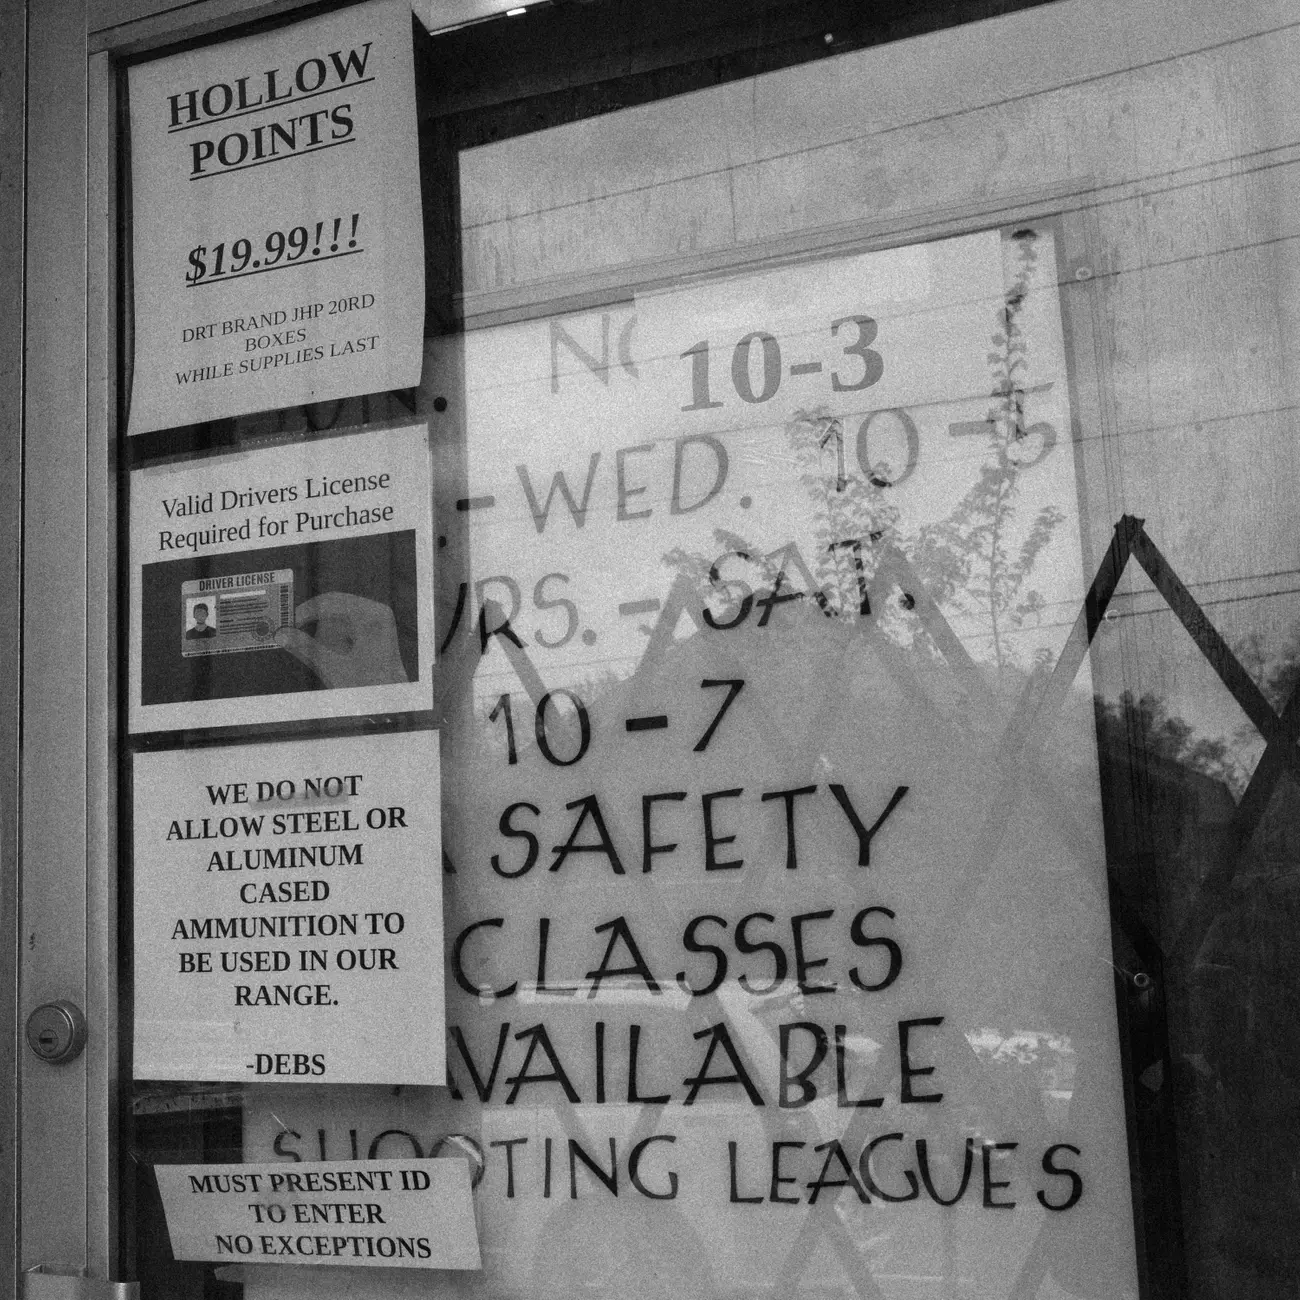 HOLLOW
POINTS
$19.99!!!
DRT BRAND JHP 20RD
BOXES
WHILE SUPPLIES LAST
Valid Drivers License
Required for Purchase
DRIVER LICENSE
WE DO NOT
ALLOW STEEL OR
ALUMINUM
CASED
AMMUNITION TO
BE USED IN OUR
RANGE.
-DEBS
MUST PRESENT ID
TO ENTER
NO EXCEPTIONS
10-3
- WED. 10-5
RS. - SAT.
10-7
SAFETY
CLASSES
AVAILABLE
SHOOTING LEAGUES